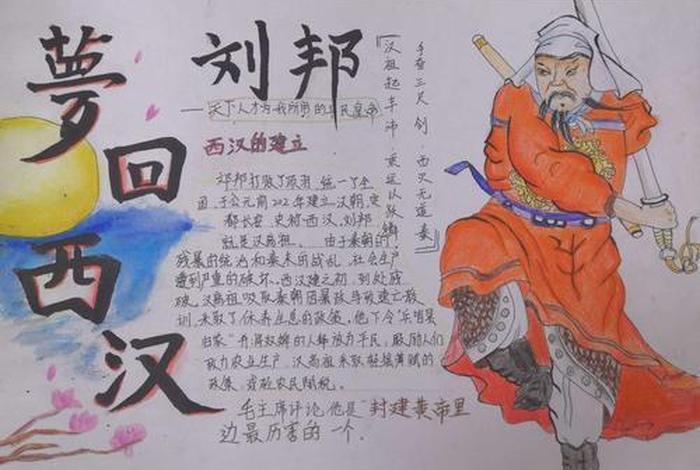 夢回西汉
刘邦
——天下人才为我所用的平民皇帝
『汉祖起丰沛,乘运以跃鳞
手奋三尺剑,西灭无道秦』
西汉的建立
邦打败了项羽,统一了全
国,于公元前202年建立汉朝,定
都长安,史称西汉,刘邦
就是汉高祖。由于秦朝的
残暴的统治和秦末的战乱,社会生产
遭到严重的破坏。西汉建立初,到处残
破,汉高祖吸取秦朝因暴政导致速亡教
训,采取了休养生息的政策,他下令"兵皆罢
归家"并将奴婢的人释放为平民,鼓励人们
致力农业生产,汉高祖采取轻徭薄赋的
政策,减轻农民赋税。
毛主席评论,他是"封建黄帝里
边最厉害的一个.